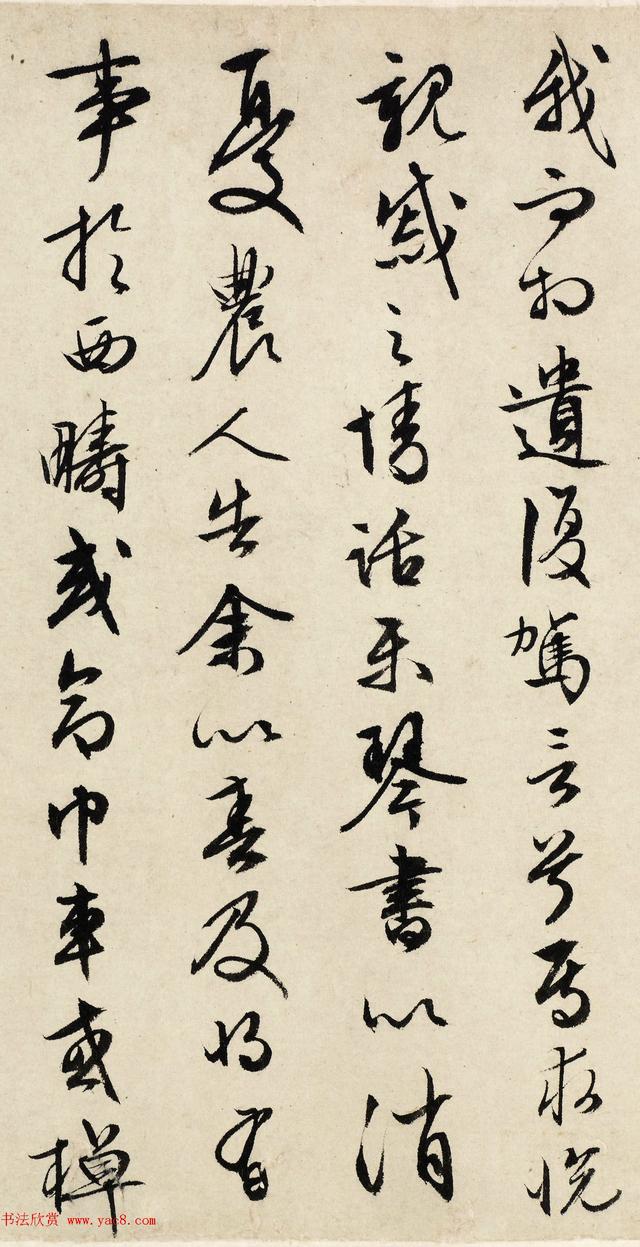 我而相遺復駕言兮焉求悦
親戚之情話樂琴書以消
憂農人告余以春及將有
事於西疇或命巾車或棹
书法欣赏 www.yac8.com